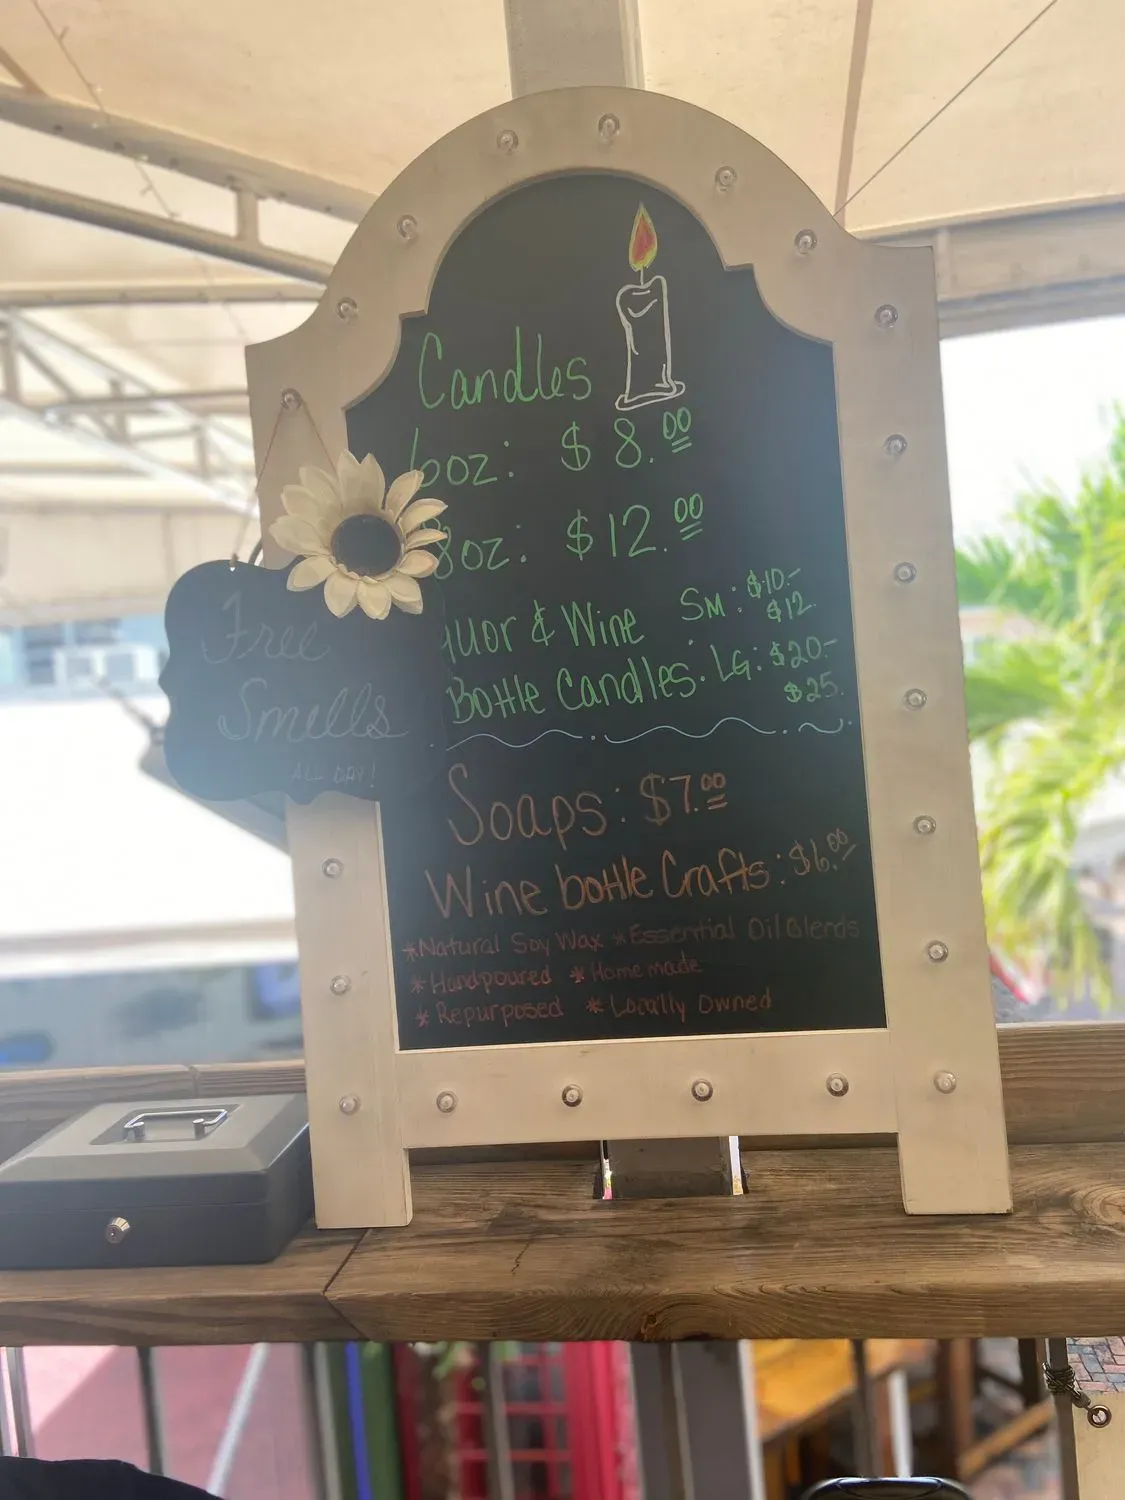 Candles
6oz: $8.00
8oz: $12.00
quor & Wine SM: $10.-
$12.
Bottle Candles. LG: $20-
$25.
Soaps: $7.00
Wine bottle Crafts: $6.00
*Natural Soy Wax *Essential Oil Blends
*Handpoured *Homemade
*Repurposed *Locally Owned
Free
Smells
ALL DAY!